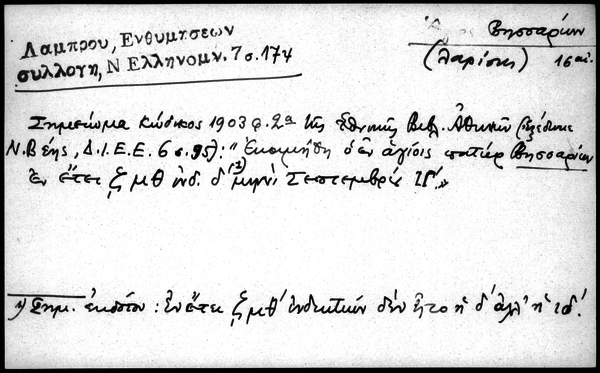 Λαμπρου, Ενθυμησεων
συλλογη, Ν Ελληνομν. 7 σ. 174
Βησσαρίων
(Λαρίσης) 16 αἰ.
Σημείωμα κώδικος 1903 φ. 2α τῆς Ἐθνικῆς Βιβλ. Ἀθηνῶν (ἐξέδωκε
Ν. Βέης, Δ.Ι.Ε.Ε. 6 σ. 95): "Ἐκοιμήθη ὁ ἐν ἁγίοις πατὴρ Βησσαρίων
ἐν ἔτει ζμθ ἰνδ. δ (1) μηνὶ Σεπτεμβρίῳ ΙΓ΄.»
1) Σημ. ἐκδότου: Ἐν ἔτει ζμθ΄ ἰνδικτιὼν δὲν ἦτο ἡ δ΄ ἀλλ' ἡ ιδ΄.